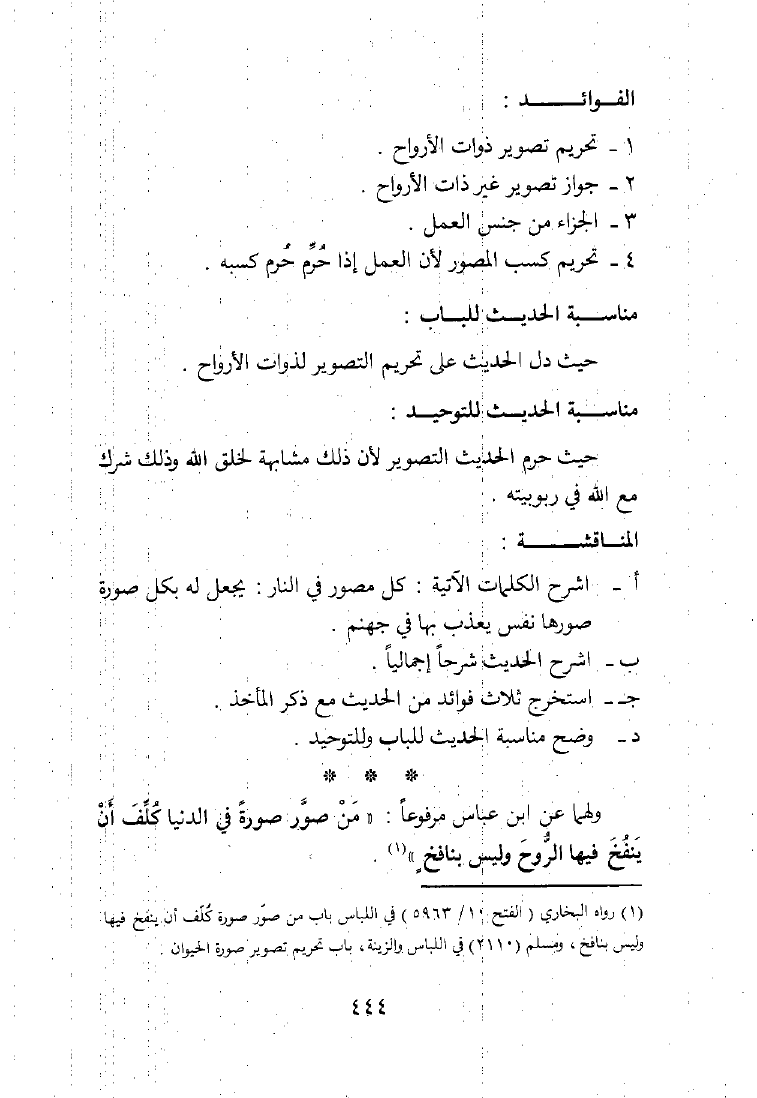 الفـوائــــــد :
١ - تحريم تصوير ذوات الأرواح .
٢ - جواز تصوير غير ذات الأرواح .
٣ - الجزاء من جنس العمل .
٤ - تحريم كسب المصور لأن العمل إذا حُرِّم حُرم كسبه .
مناســـبة الحديـــث للبـــاب :
حيث دل الحديث على تحريم التصوير لذوات الأرواح .
مناســـبة الحديـــث للتوحيـــد :
حيث حرم الحديث التصوير لأن ذلك مشابهة لخلق الله وذلك شرك
مع الله في ربوبيته .
المنــاقشـــــــة :
أ - اشرح الكلمات الآتية : كل مصور في النار : يجعل له بكل صورة
صورها نفس يعذب بها في جهنم .
ب - اشرح الحديث شرحاً إجمالياً .
جـ - استخرج ثلاث فوائد من الحديث مع ذكر المأخذ .
د - وضح مناسبة الحديث للباب وللتوحيد .
* * *
ولهما عن ابن عباس مرفوعاً : « مَنْ صوَّر صورةً في الدنيا كُلِّفَ أَنْ
يَنفُخَ فيها الرُّوحَ وليس بنافخٍ »(١) .
(١) رواه البخاري ( الفتح ١٠ / ٥٩٦٣ ) في اللباس باب من صوّر صورة كُلّف أن ينفخ فيها
وليس بنافخ ، ومسلم (٢١١٠) في اللباس والزينة ، باب تحريم تصوير صورة الحيوان .
٤٤٤